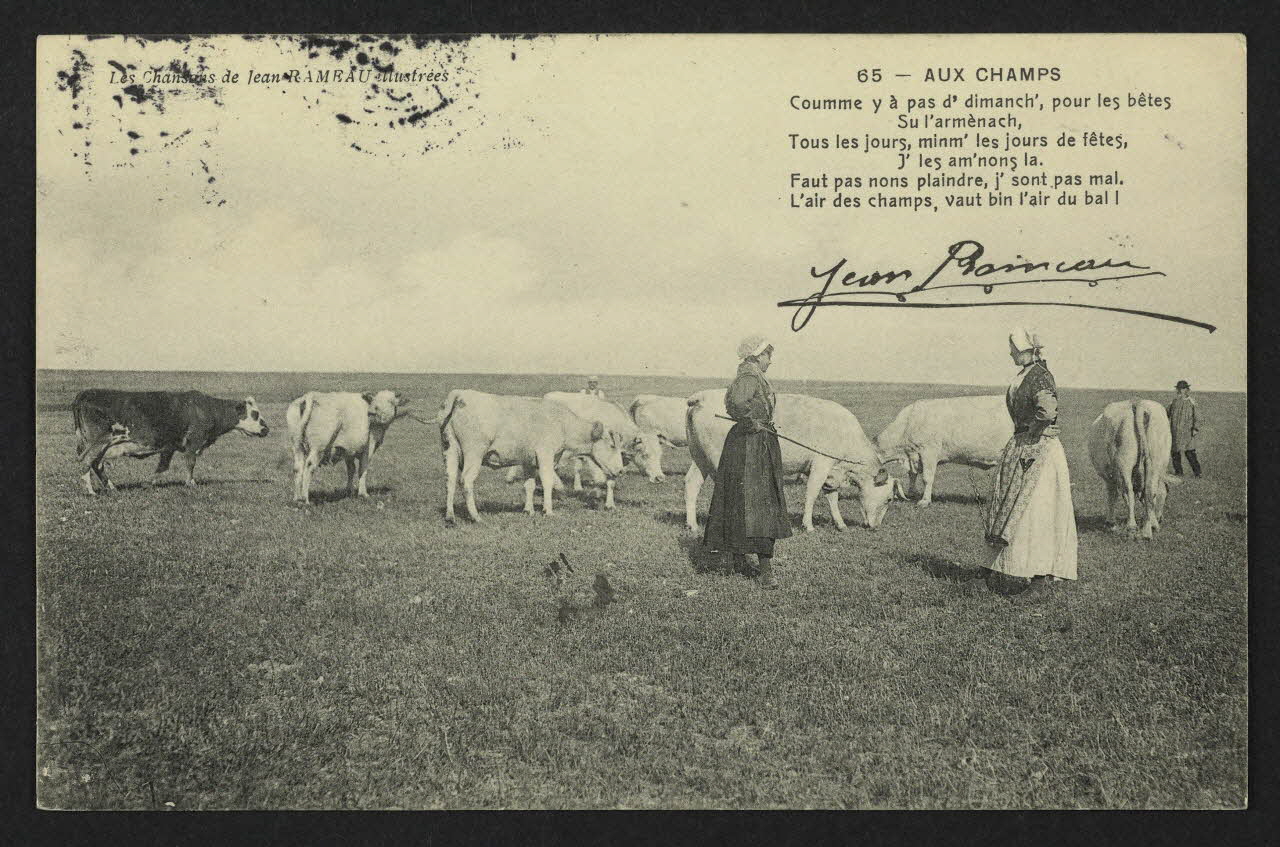 Les Chansons de Jean RAMEAU illustrées
65 — AUX CHAMPS
Coumme y à pas d' dimanch', pour les bêtes
Su l'armènach,
Tous les jours, minm' les jours de fêtes,
J' les am'nons la.
Faut pas nons plaindre, j' sont pas mal.
L'air des champs, vaut bin l'air du bal !
Jean Rameau